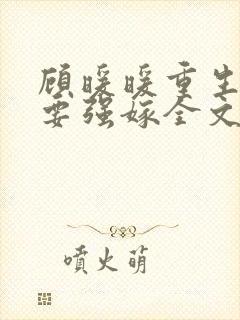 顾暖暖重生
要强嫁全文
喷火萌